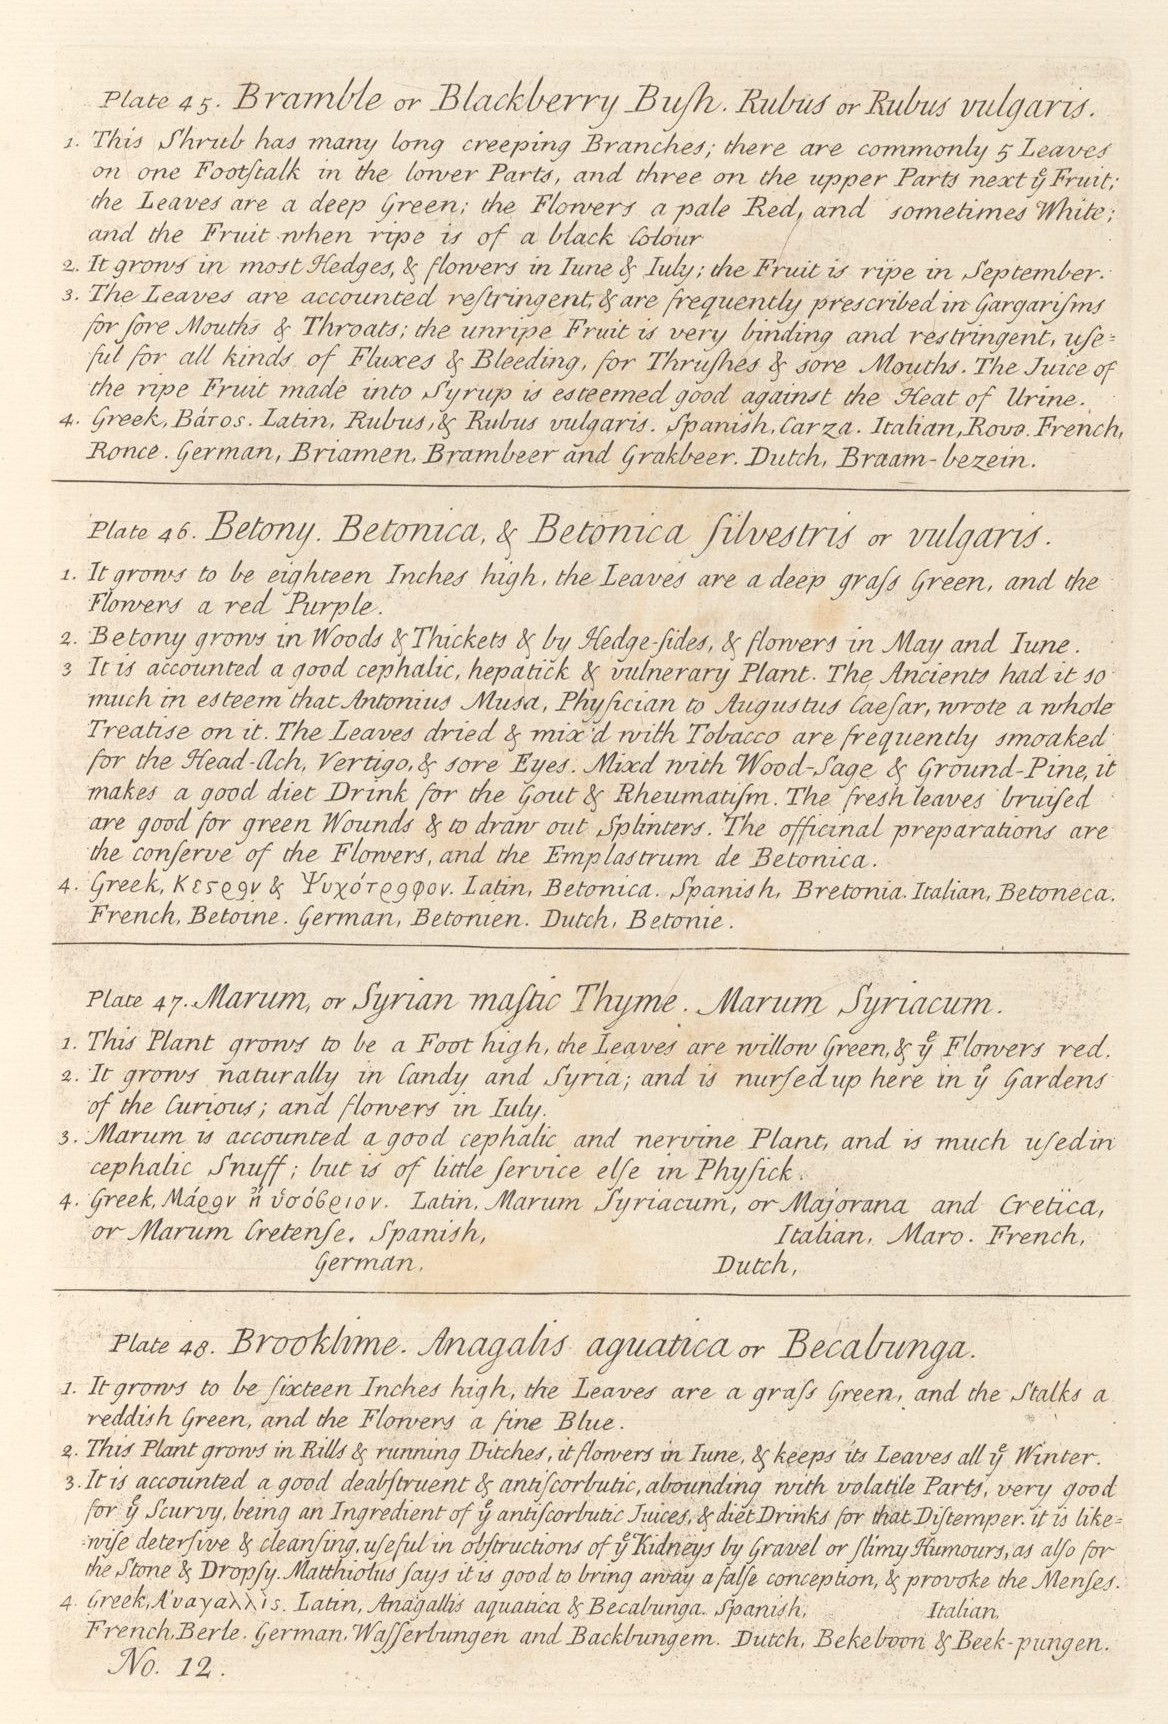 Plate 45. Bramble or Blackberry Buſh. Rubus or Rubus vulgaris.
1. This Shrub has many long creeping Branches; there are commonly 5 Leaves
on one Footſtalk in the lower Parts, and three on the upper Parts next yͤ Fruit;
the Leaves are a deep Green; the Flowers a pale Red, and sometimes White;
and the Fruit when ripe is of a black Colour
2. It grows in most Hedges, & flowers in Iune & Iuly; the Fruit is ripe in September.
3. The Leaves are accounted reſtringent, & are frequently prescribed in Gargariſms
for ſore Mouths & Throats; the unripe Fruit is very binding and restringent, uſe=
ful for all kinds of Fluxes & Bleeding, for Thruſhes & sore Mouths. The Juice of
the ripe Fruit made into Syrup is esteemed good against the Heat of Urine.
4. Greek, Βάτος. Latin, Rubus, & Rubus vulgaris. Spanish, Carza. Italian, Rovo. French,
Ronce. German, Briamen, Brambeer and Grakbeer. Dutch, Braam-bezein.
Plate 46. Betony. Betonica, & Betonica ſilvestris or vulgaris.
1. It grows to be eighteen Inches high, the Leaves are a deep graſs Green, and the
Flowers a red Purple.
2. Betony grows in Woods & Thickets & by Hedge-ſides, & flowers in May and Iune.
3 It is accounted a good cephalic, hepatick & vulnerary Plant. The Ancients had it so
much in esteem that Antonius Musa, Phyſician to Augustus Caeſar, wrote a whole
Treatise on it. The Leaves dried & mix'd with Tobacco are frequently smoaked
for the Head-Ach, Vertigo, & sore Eyes. Mixd with Wood-Sage & Ground-Pine, it
makes a good diet Drink for the Gout & Rheumatiſm. The fresh leaves bruiſed
are good for green Wounds & to draw out Splinters. The officinal preparations are
the conſerve of the Flowers, and the Emplastrum de Betonica.
4. Greek, Κέςρȣν & Ψυχότροφον. Latin, Betonica. Spanish, Bretonia. Italian, Betoneca.
French, Betoine. German, Betonien. Dutch, Betonie.
Plate 47. Marum, or Syrian maſtic Thyme. Marum Syriacum.
1. This Plant grows to be a Foot high, the Leaves are willow Green, & yͤ Flowers red.
2. It grows naturally in Candy and Syria; and is nurſed up here in yͤ Gardens
of the Curious; and flowers in Iuly.
3. Marum is accounted a good cephalic and nervine Plant, and is much uſed in
cephalic Snuff; but is of little ſervice elſe in Phyſick.
4. Greek, Μάρον ἢ ὑσόβριον. Latin, Marum Syriacum, or Majorana and Cretica,
or Marum Cretenſe. Spanish, Italian, Maro. French,
German, Dutch,
Plate 48. Brooklime. Anagalis aguatica or Becabunga.
1. It grows to be ſixteen Inches high, the Leaves are a graſs Green, and the Stalks a
reddish Green, and the Flowers a fine Blue.
2. This Plant grows in Rills & running Ditches, it flowers in Iune, & keeps its Leaves all yͤ Winter.
3. It is accounted a good deabſtruent & antiſcorbutic, abounding with volatile Parts, very good
for yͤ Scurvy, being an Ingredient of yͤ antiſcorbutic Juices, & diet Drinks for that Diſtemper. it is like=
=wiſe deterſive & cleanſing, uſeful in obſtructions of yͤ Kidneys by Gravel or ſlimy Humours, as alſo for
the Stone & Dropſy. Matthiolus ſays it is good to bring away a falſe conception, & provoke the Menſes.
4. Greek, Ἀναγαλλὶς. Latin, Anagallis aquatica & Becabunga. Spanish, Italian,
French, Berle. German, Waſſerbungen and Backbungem. Dutch, Bekeboon & Beek-pungen.
No. 12.